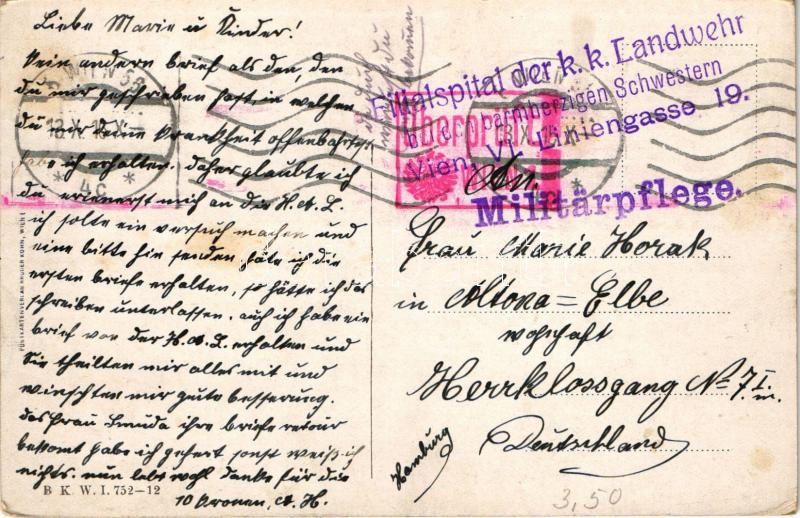 Liebe Marie u Kinder!
Kein andern brief als den, den
du mir geschrieben hast, in welchen
du mir deine Krankheit offenbahrtest
habe ich erhalten. daher glaubte ich
du erinnerst mich an die H.A.L.
ich solte ein versuch machen und
eine bitte hin senden, häte ich die
ersten briefe erhalten, so hätte ich das
schreiben unterlassen. auch ich habe ein
brief von der H.A.L. erhalten und
Sie theilten mir alles mit und
winschten mir gute besserung.
das Frau Smuda ihre briefe retour
bekomt habe ich gehert sonst weiß ich
nichts. nun lebt wohl danke für die
10 Kronen, A. H.
B. K. W. I. 752-12
POSTKARTENVERLAG BRÜDER KOHN, WIEN I
WIEN 53
13.X.15.X
* 4c *
WIEN
13.X.15
Überprüft
Filialspital der k. k. Landwehr
b. d. barmherzigen Schwestern
Wien, VI. Liniengasse 19.
Militärpflege.
An.
Frau Marie Horak
in Altona = Elbe
wohhaft
Herrklossgang No 7 I.
Deutschland
Hamburg
3,50